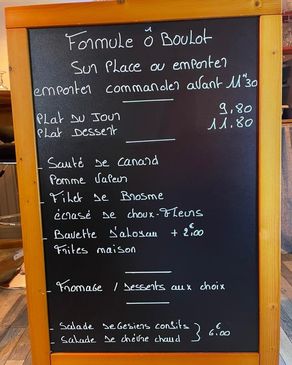 Formule Ô Boulot
Sur Place ou emporter
emporter commander avant 11h30
Plat du Jour 9.80
Plat Dessert 11.80
- Sauté de canard
Pomme vapeur
- Filet de Brosme
écrasé de choux-fleurs
- Bavette D'aloyau + 2€00
Frites maison
- Fromage / Desserts aux choix
- Salade de Gesiers confits
- Salade de chèvre chaud } 6€00